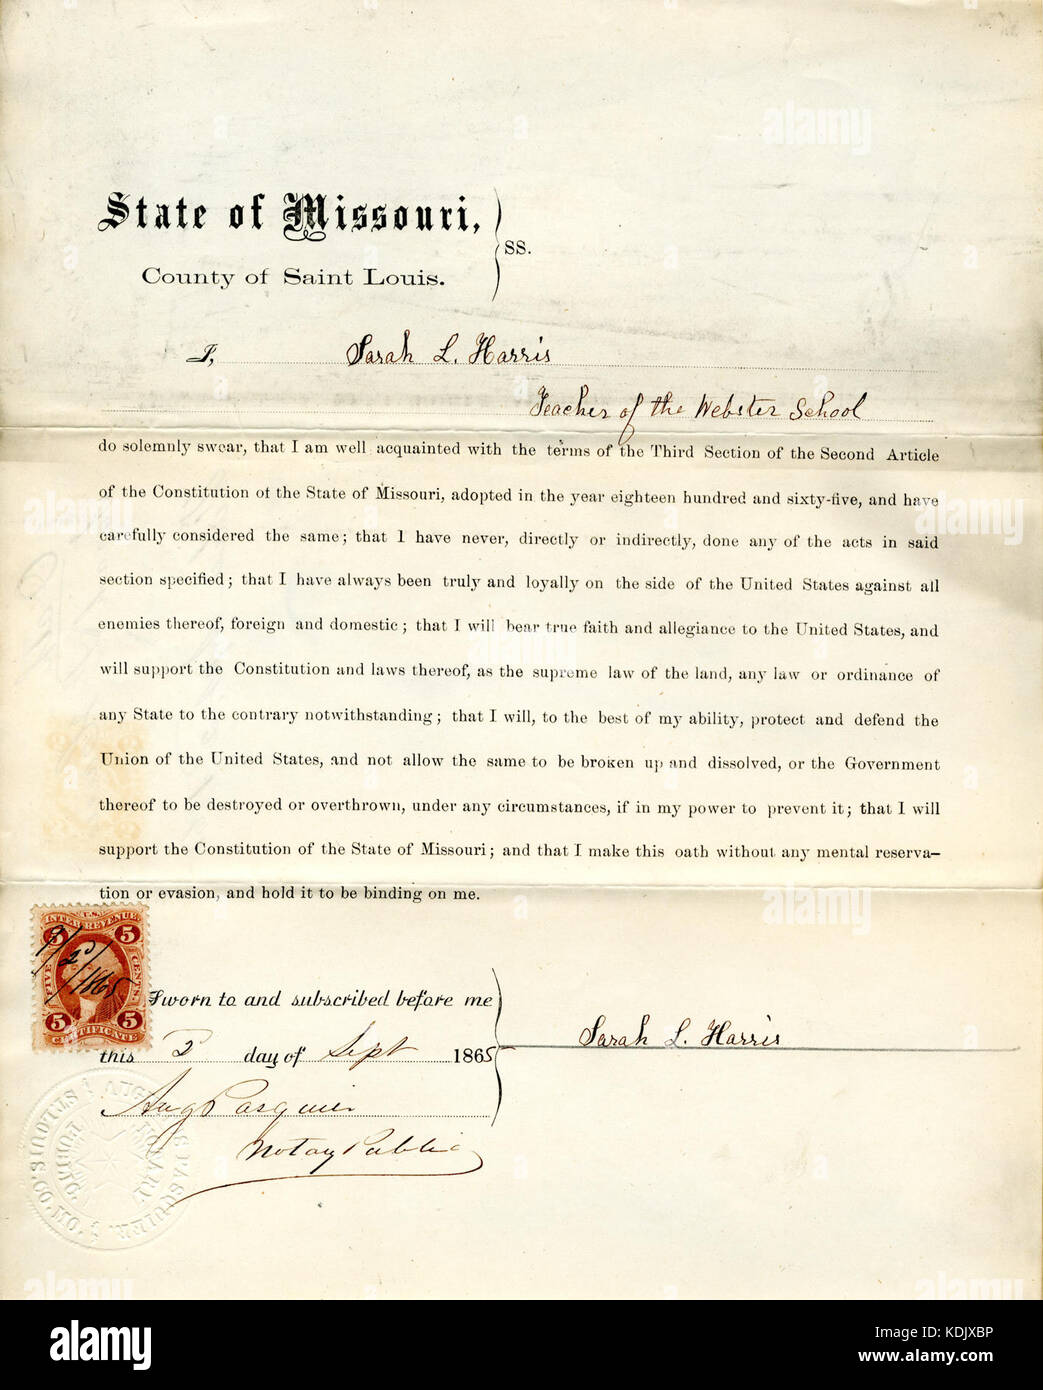 State of Missouri,
SS.
County of Saint Louis.
I, Sarah L. Harris
Teacher of the Webster School
do solemnly swear, that I am well acquainted with the terms of the Third Section of the Second Article
of the Constitution of the State of Missouri, adopted in the year eighteen hundred and sixty-five, and have
carefully considered the same; that I have never, directly or indirectly, done any of the acts in said
section specified; that I have always been truly and loyally on the side of the United States against all
enemies thereof, foreign and domestic; that I will bear true faith and allegiance to the United States, and
will support the Constitution and laws thereof, as the supreme law of the land, any law or ordinance of
any State to the contrary notwithstanding; that I will, to the best of my ability, protect and defend the
Union of the United States, and not allow the same to be broken up and dissolved, or the Government
thereof to be destroyed or overthrown, under any circumstances, if in my power to prevent it; that I will
support the Constitution of the State of Missouri; and that I make this oath without any mental reserva-
tion or evasion, and hold it to be binding on me.
U.S.
INTER. REVENUE
5 5
FIVE CENTS.
9/2d/1865
5 5
CERTIFICATE
Sworn to and subscribed before me
this 2 day of Sept 1865
Sarah L. Harris
Aug Pasquier
Notay Public
AUG. S. PASQUIER.
NOTARY PUBLIC.
ST LOUIS CO. MO.
alamy
Image ID: KDJXBP
www.alamy.com